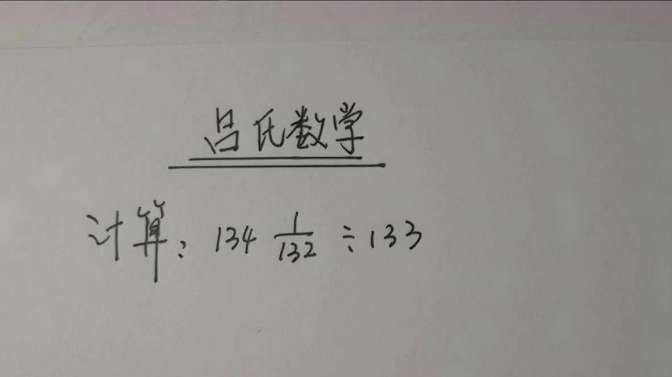 吕氏数学
计算：134 1/132 ÷133